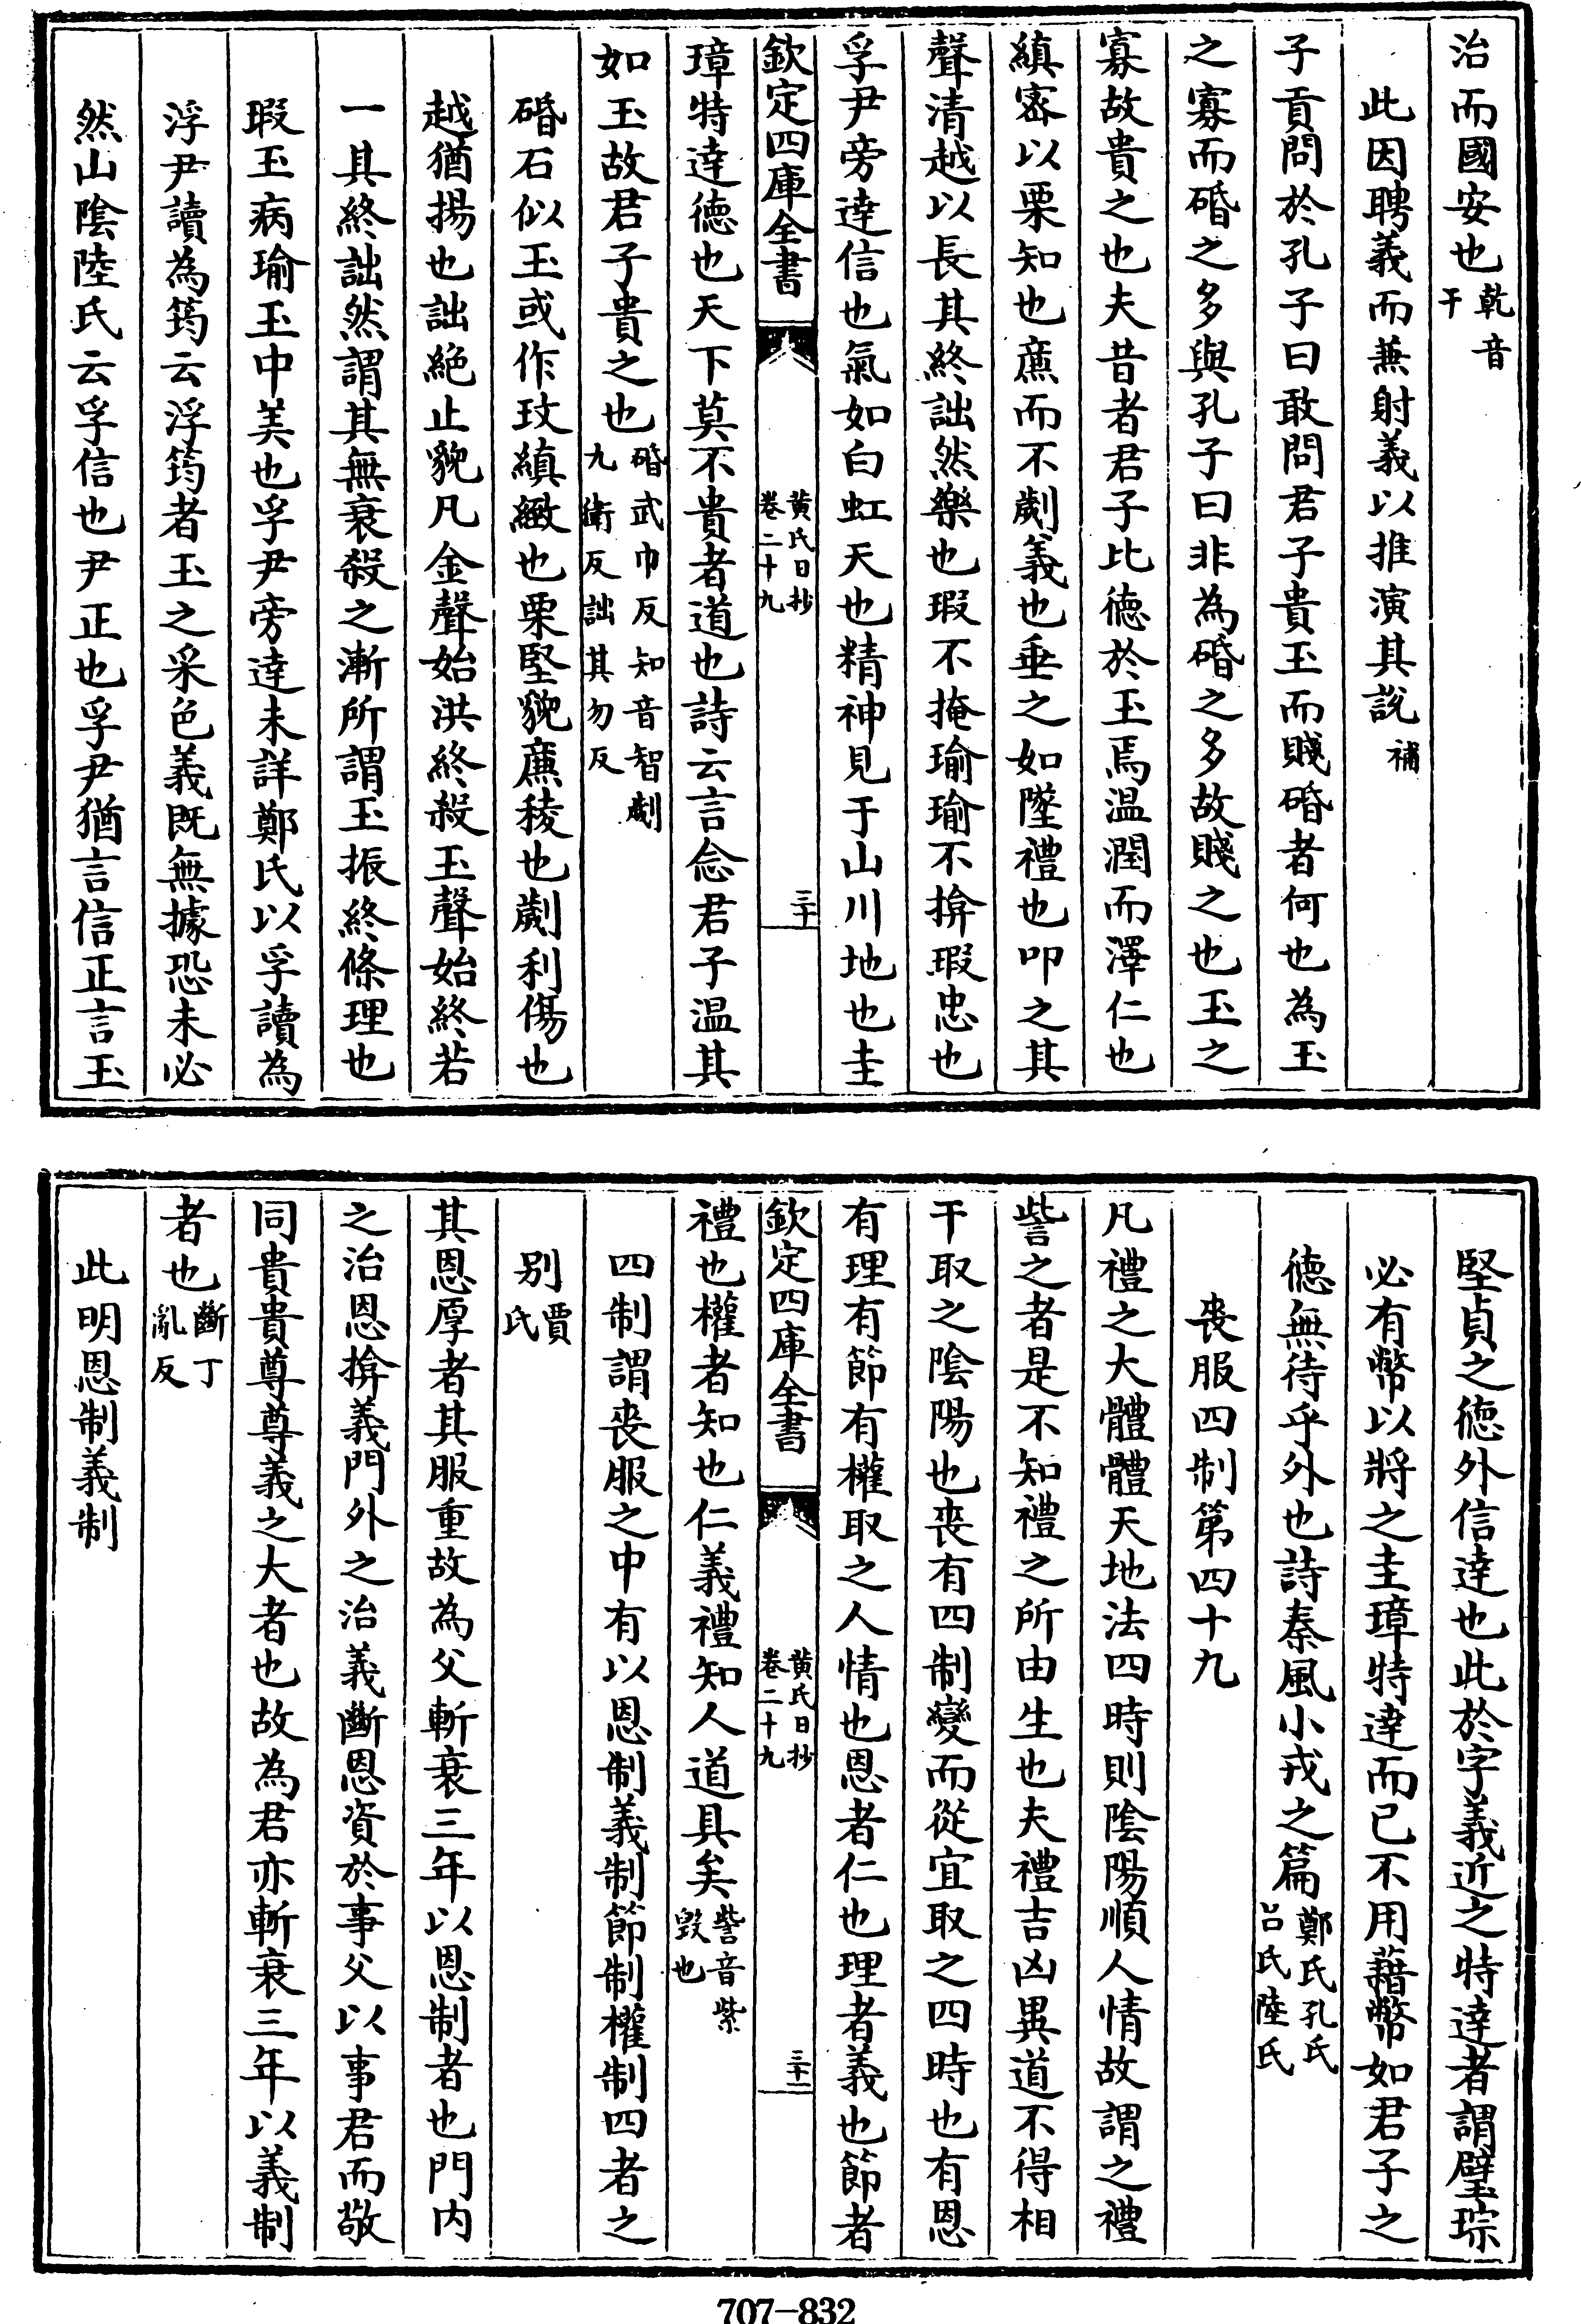 治而國安也乾音干
此因聘義而兼射義以推演其說補
子貢問於孔子曰敢問君子貴玉而賤碈者何也為玉
之寡而碈之多與孔子曰非為碈之多故賤之也玉之
寡故貴之也夫昔者君子比德於玉焉温潤而澤仁也
縝宻以栗知也㢘而不劌義也垂之如墜禮也叩之其
聲清越以長其終詘然樂也瑕不掩瑜瑜不揜瑕忠也
孚尹旁達信也氣如白虹天也精神見于山川地也圭
欽定四庫全書
黄氏日抄
卷二十九
三十
璋特達德也天下莫不貴者道也詩云言念君子温其
如玉故君子貴之也碈武巾反知音智劌九衛反詘其勿反
碈石似玉或作玟縝緻也栗堅貌㢘稜也劌利傷也
越猶揚也詘絶止貌凡金聲始洪終殺玉聲始終若
一其終詘然謂其無衰殺之漸所謂玉振終條理也
瑕玉病瑜玉中美也孚尹旁達未詳鄭氏以孚讀為
浮尹讀為筠云浮筠者玉之采色義既無據恐未必
然山隂陸氏云孚信也尹正也孚尹猶言信正言玉
堅貞之德外信達也此於字義近之特達者謂璧琮
必有幣以將之圭璋特達而已不用藉幣如君子之
德無待乎外也詩秦風小戎之篇鄭氏孔氏吕氏陸氏
喪服四制第四十九
凡禮之大體體天地法四時則隂陽順人情故謂之禮
訾之者是不知禮之所由生也夫禮吉凶異道不得相
干取之隂陽也喪有四制變而從宜取之四時也有恩
有理有節有權取之人情也恩者仁也理者義也節者
欽定四庫全書
黄氏日抄
卷二十九
三十一
禮也權者知也仁義禮知人道具矣訾音紫毁也
四制謂喪服之中有以恩制義制節制權制四者之
别賈氏
其恩厚者其服重故為父斬衰三年以恩制者也門内
之治恩揜義門外之治義斷恩資於事父以事君而敬
同貴貴尊尊義之大者也故為君亦斬衰三年以義制
者也斷丁亂反
此明恩制義制
707-832